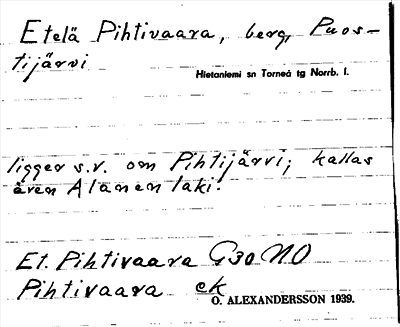 Etelä Pihtivaara, berg, Puos-
tijärvi
Hietaniemi sn Torneå tg Norrb. l.
ligger s.v. om Pihtijärvi; kallas
även Alanen laki.
Et. Pihtivaara G30 NO
Pihtivaara ek
O. ALEXANDERSSON 1939.